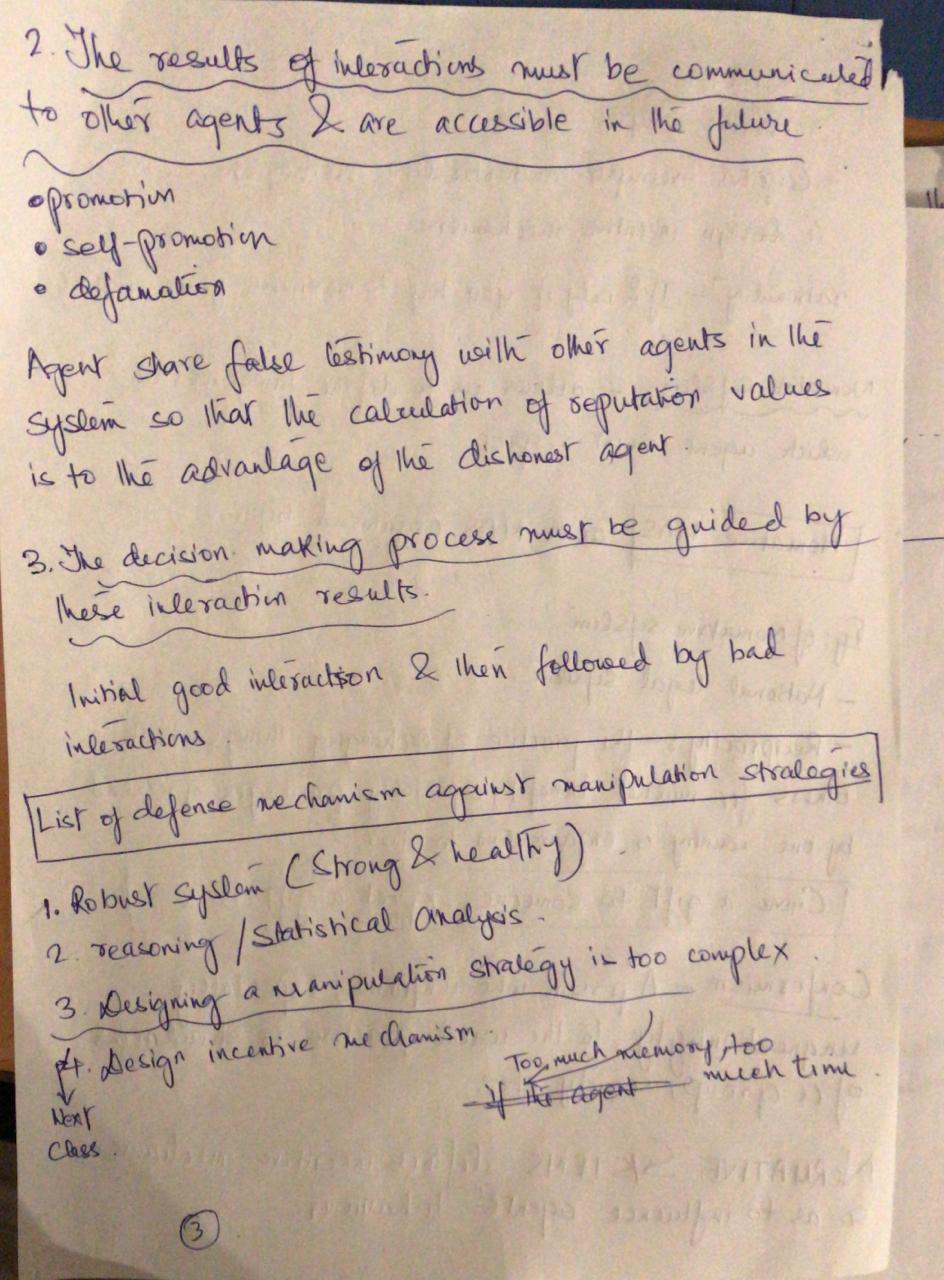 2. The results of interactions must be communicated
to other agents & are accessible in the future
• promotion
• self-promotion
• defamation
Agent share false testimony with other agents in the
system so that the calculation of reputation values
is to the advantage of the dishonest agent.
3. The decision making process must be guided by
these interaction results.
Initial good interaction & then followed by bad
interactions.
List of defense mechanism against manipulation strategies
1. Robust system (Strong & healthy).
2. reasoning / Statistical analysis.
3. Designing a manipulation strategy is too complex.
4. Design incentive mechanism.
Too much memory, too
much time.
If the agent
Next
Class.
3